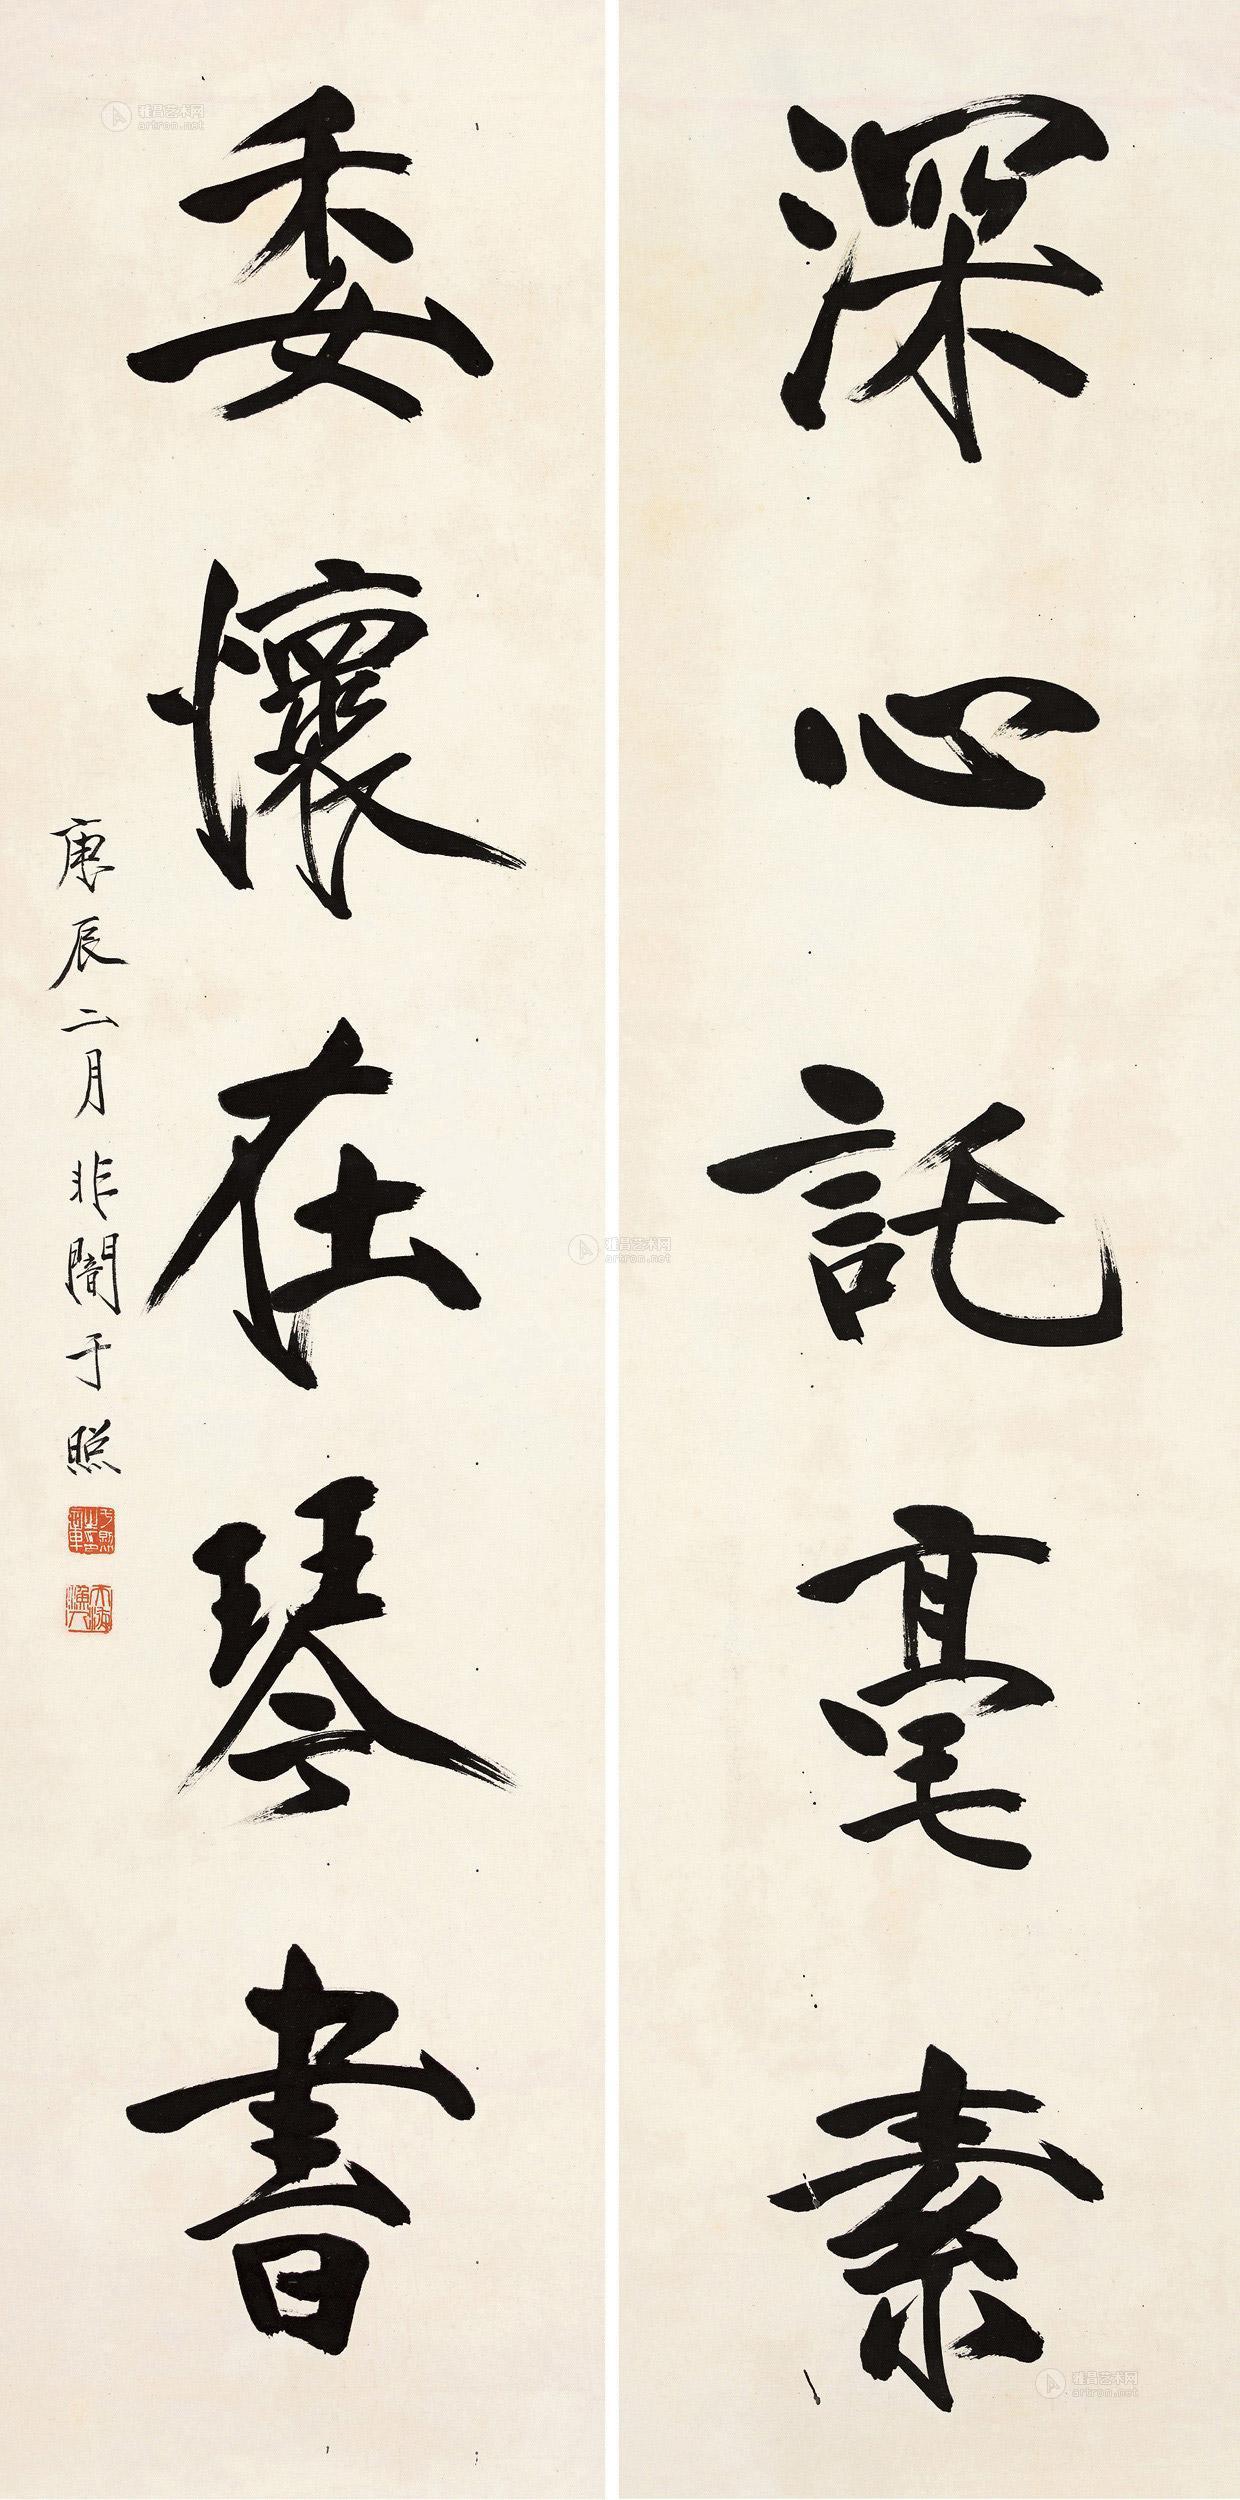 深心託毫素
委懷在琴書
庚辰二月非闇于照
雅昌艺术网
artron.net
雅昌艺术网
artron.net
雅昌艺术网
artron.net